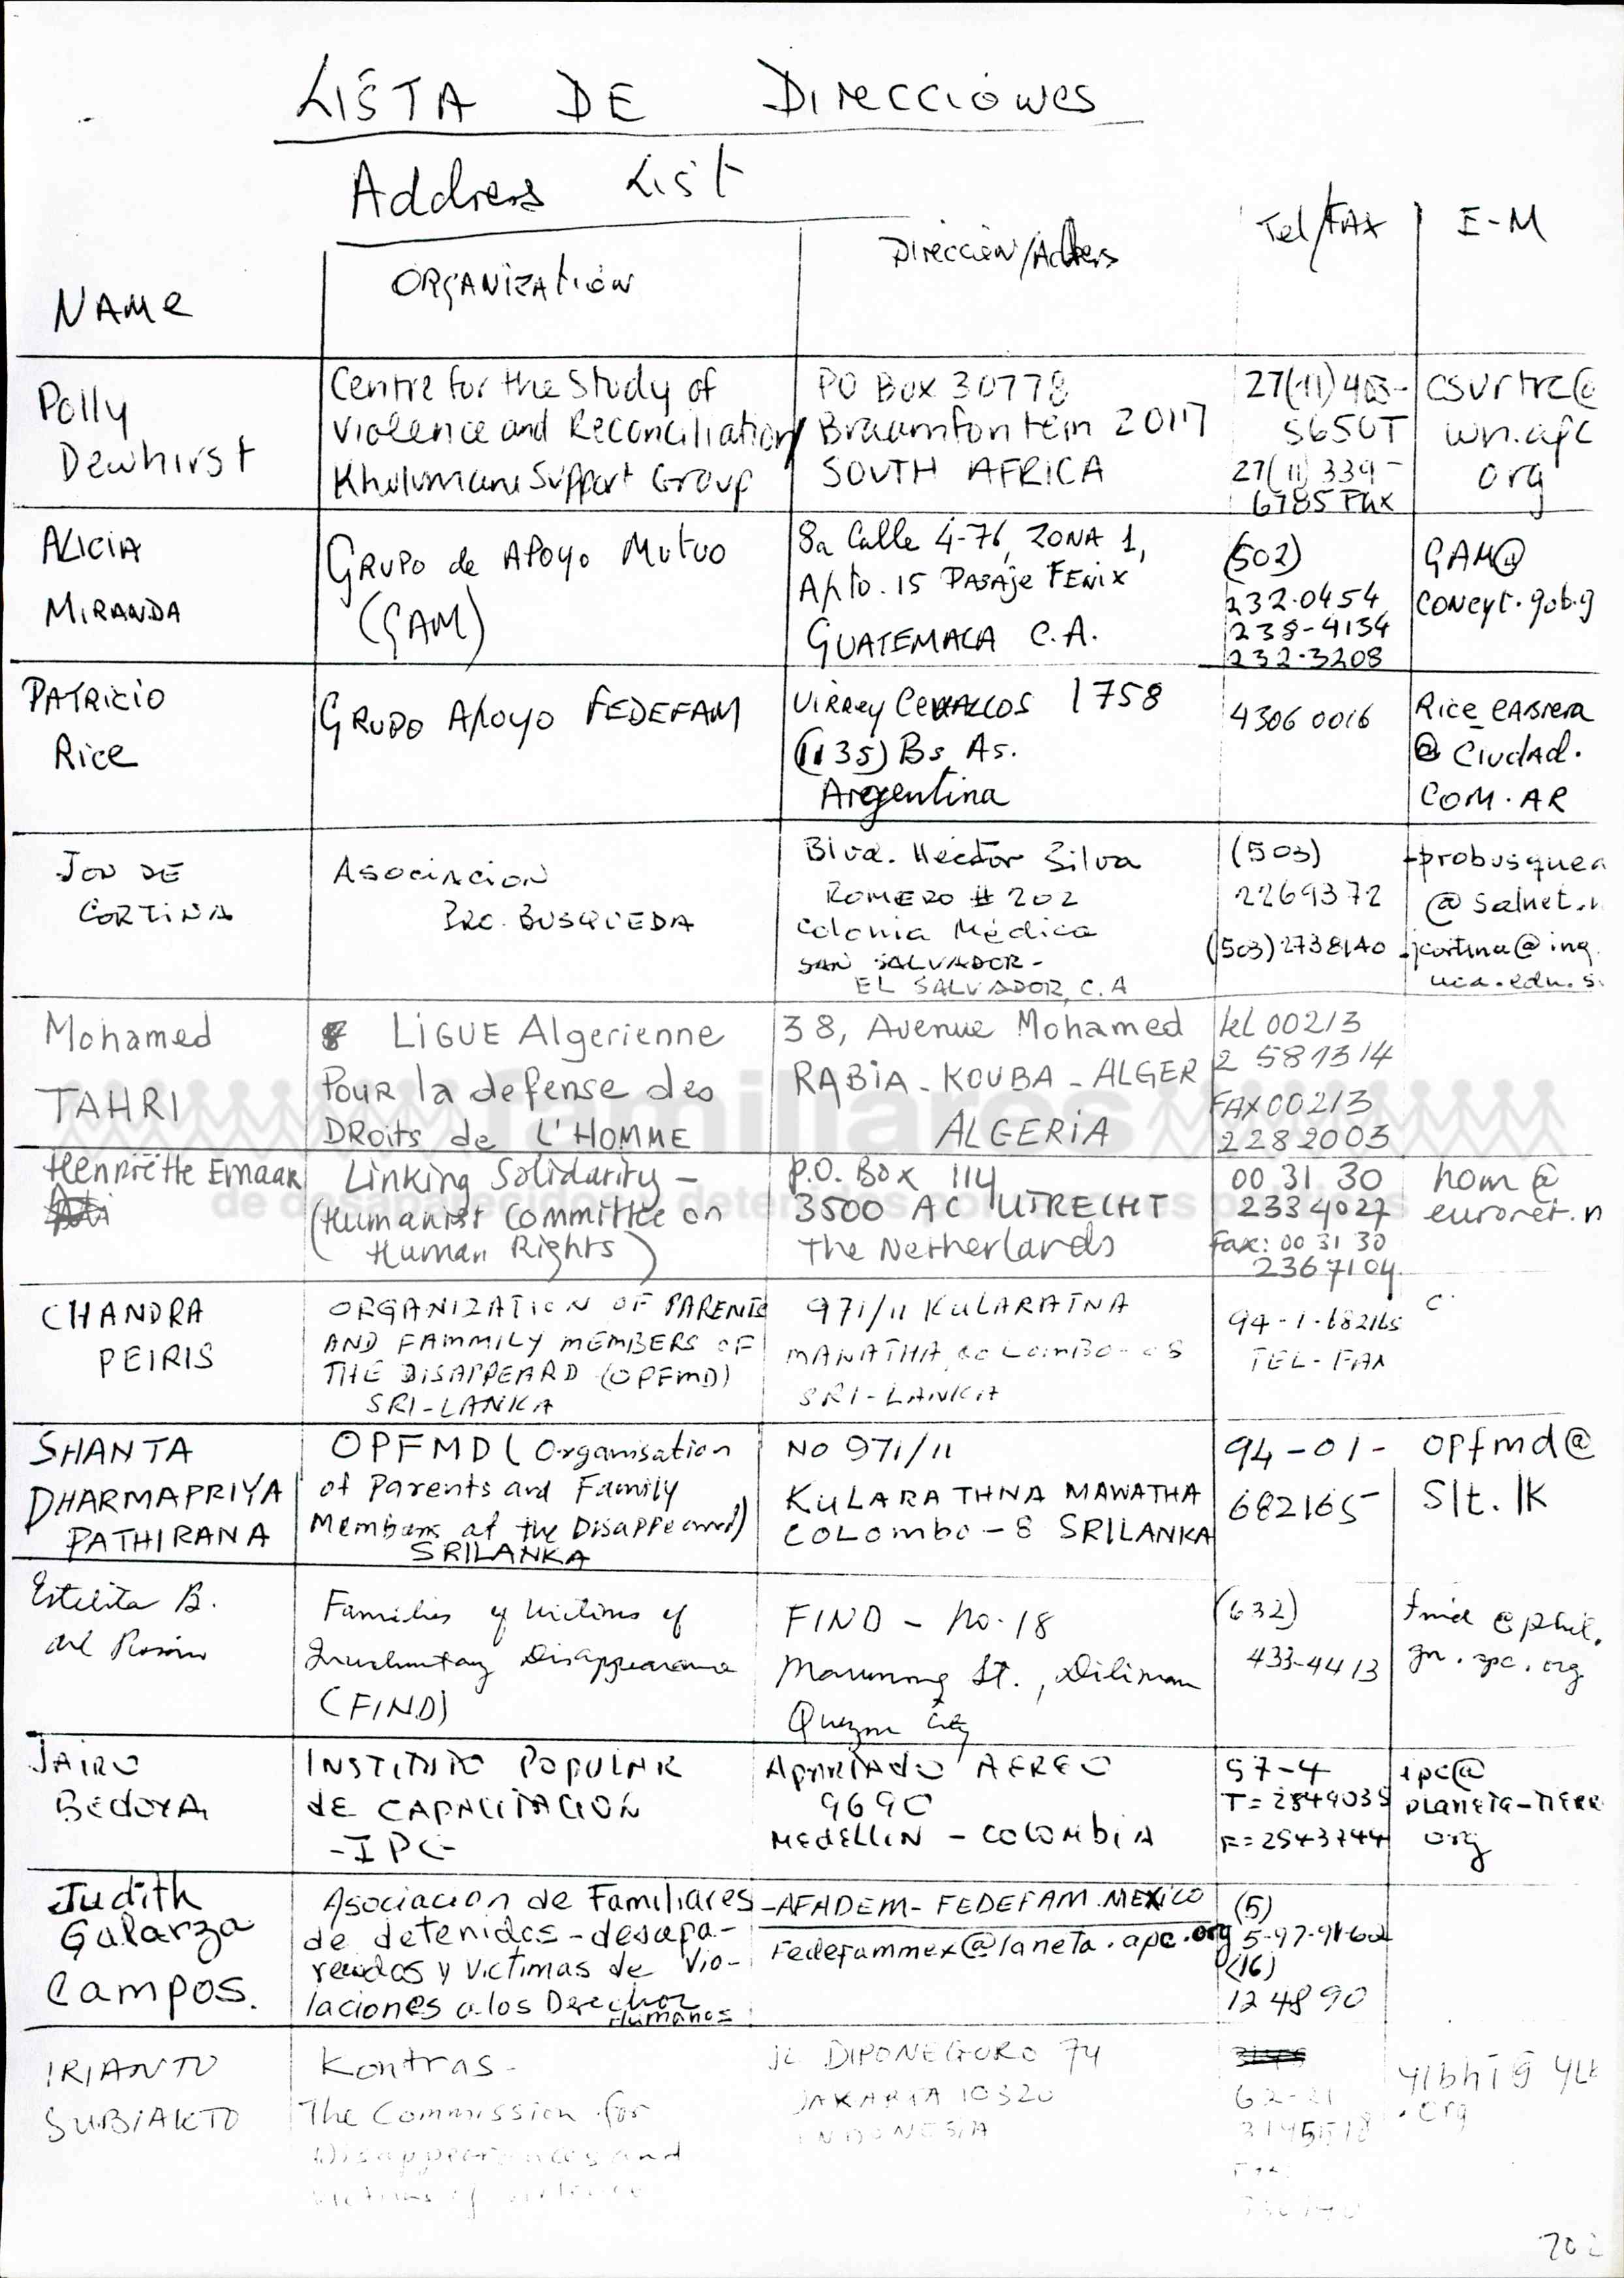 LISTA DE DIRECCIONES
Address List
NAME
ORGANIZATION
Dirección/Address
Tel/FAX
E-M
Polly
Dewhirst
Centre for the Study of
Violence and Reconciliation/
Khulumani Support Group
PO Box 30778
Braamfontein 2017
SOUTH AFRICA
27(11) 403-
5650T
27(11) 339-
6785 Fax
csvrtrc@
wn.apc
org
ALICIA
MIRANDA
GRUPO de APOYO MUTUO
(GAM)
8a Calle 4-76, ZONA 1,
Apto. 15 PASAJE FENIX
GUATEMALA C.A.
(502)
232-0454
238-4134
232-3208
GAM@
CONCYT.gob.g
PATRICIO
Rice
GRUPO APOYO FEDEFAM
VIRREY CEVALLOS 1758
(1135) Bs As.
Argentina
4306 0016
Rice_CABRERA
@ Ciudad.
COM.AR
JON DE
CORTINA
ASOCIACION
PRO-BUSQUEDA
Blvd. Hector Silva
ROMERO # 202
Colonia Médica
SAN SALVADOR -
EL SALVADOR, C.A
(503)
2269372
(503) 2738140
-probusquea
@ salnet.
-jcortina@ing.
uca.edu.s
Mohamed
TAHRI
LIGUE Algerienne
Pour la defense des
DRoits de L'HOMME
38, Avenue Mohamed
RABIA - KOUBA - ALGER
ALGERIA
tel 00213
2 581314
FAX 00213
2282003
familiares
de desaparecidos detenidos por razones políticas
Henriëtte Emaar
Linking Solidarity -
(Humanist Committee on
Human Rights)
P.O. Box 114
3500 AC UTRECHT
The Netherlands
00 31 30
2334027
Fax: 00 31 30
2367104
hom@
euronet.n
CHANDRA
PEIRIS
ORGANIZATION OF PARENTS
AND FAMMILY MEMBERS OF
THE DISAPPEARD (OPFMD)
SRI-LANKA
971/11 KULARATNA
MANATHA COLOMBO-08
SRI-LANKA
94-1-682165
TEL-FAX
SHANTA
DHARMAPRIYA
PATHIRANA
OPFMD (Organisation
of Parents and Family
Members of the Disappeared)
SRILANKA
NO 971/11
KULARATHNA MAWATHA
COLOMBO - 8 SRILANKA
94-01-
682165
opfmd@
slt.lk
Estelita B.
del Rosario
Families of Victims of
Involuntary Disappearance
(FIND)
FIND - No. 18
St., Diliman
Quezon City
(632)
433-4413
find @phil.
gn.apc.org
JAIRO
BEDOYA
INSTITUTO POPULAR
DE CAPACITACION
-IPC-
APARTADO AEREO
9690
MEDELLIN - COLOMBIA
57-4
T= 2849035
F= 2543744
ipc@
planeta-tierr
org
Judith
Galarza
Campos.
Asociacion de Familiares
de detenidos-desapa-
recidos y victimas de Vio-
laciones a los Derechos
Humanos
-AFADEM- FEDEFAM.MEXICO
Fedefammex@laneta.apc.org
(5)
5-97-91-60
(16)
12 48 90
IRIANTO
SUBIAKTO
Kontras -
The Commission for
Disappearances and
victims of violence
JL DIPONEGORO 74
JAKARTA 10320
INDONESIA
62-21
3145518
Fax
ylbhi@ylb
.org